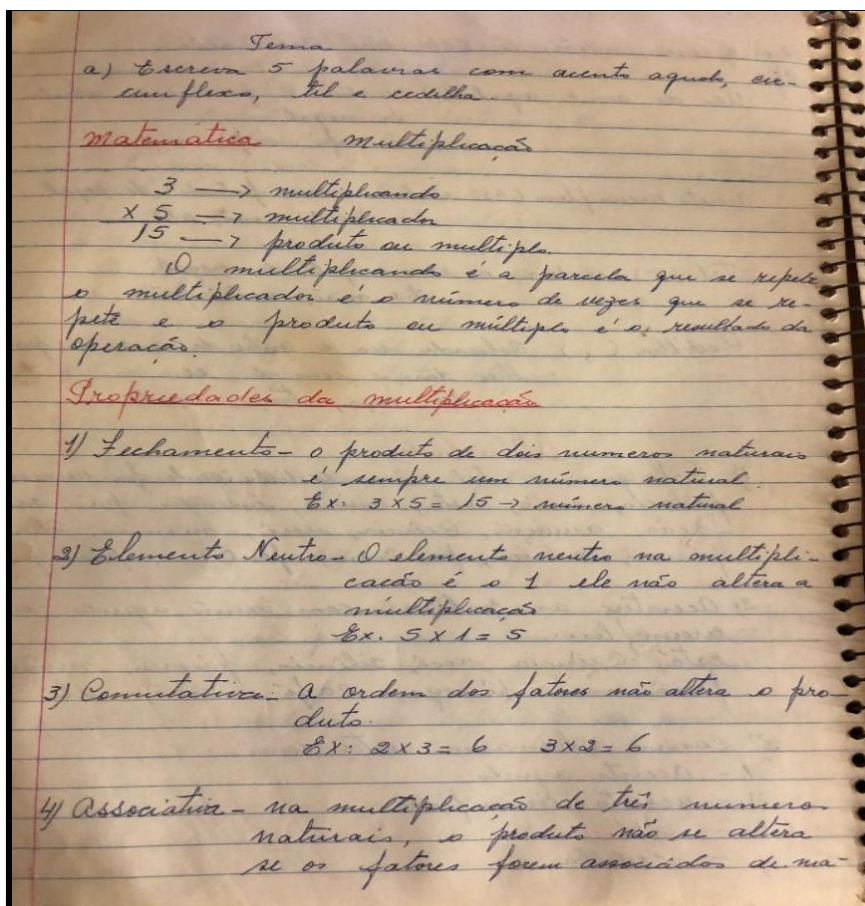 Tema
a) Escreva 5 palavras com acento agudo, cir-
cunflexo, til e cedilha.
Matemática multiplicação
3 → multiplicando
x 5 → multiplicador
15 → produto ou multiplo.
O multiplicando é a parcela que se repete
o multiplicador é o número de vezes que se re-
pete e o produto ou múltiplo é o resultado da
operação.
Propriedades da multiplicação
1) Fechamento - o produto de dois numeros naturais
é sempre um número natural.
Ex: 3 x 5 = 15 → número natural
2) Elemento Neutro - O elemento neutro na multipli-
cação é o 1 ele não altera a
multiplicação
Ex. 5 x 1 = 5
3) Comutativa - A ordem dos fatores não altera o pro-
duto.
Ex: 2 x 3 = 6 3 x 2 = 6
4) Associativa - na multiplicação de três numeros
naturais, o produto não se altera
se os fatores forem associados de ma-